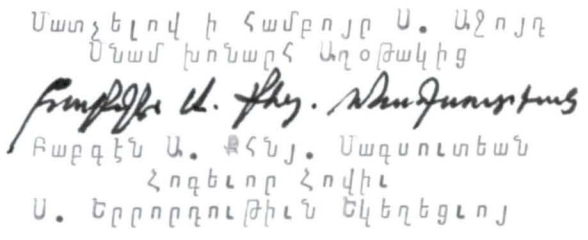 Մատչելով ի Համբոյր Ս. Աջոյդ
Մնամ խոնարհ Աղօթակից
Բաբգէն Ա. Քհնյ. Մագսուտեան
Հոգեւոր Հովիւ
Ս. Երրորդութիւն Եկեղեցւոյ